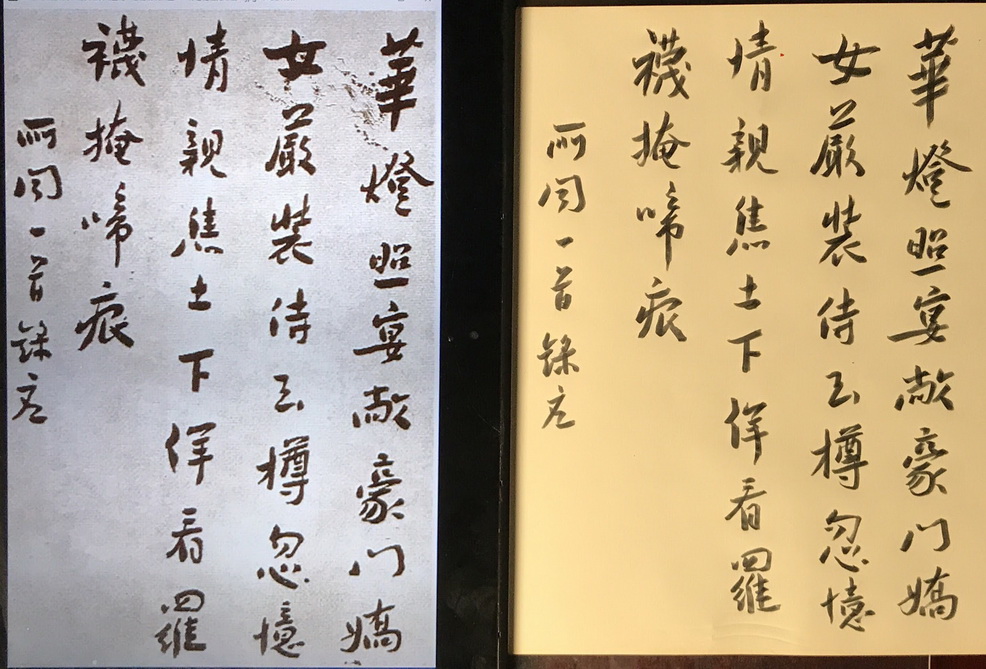 華燈照宴敞豪門嬌
女嚴裝侍玉樽忽憶
情親焦土下佯看羅
襪掩啼痕
所聞一首錄
華燈照宴敞豪門嬌
女嚴裝侍玉樽忽憶
情親焦土下佯看羅
襪掩啼痕
所聞一首錄